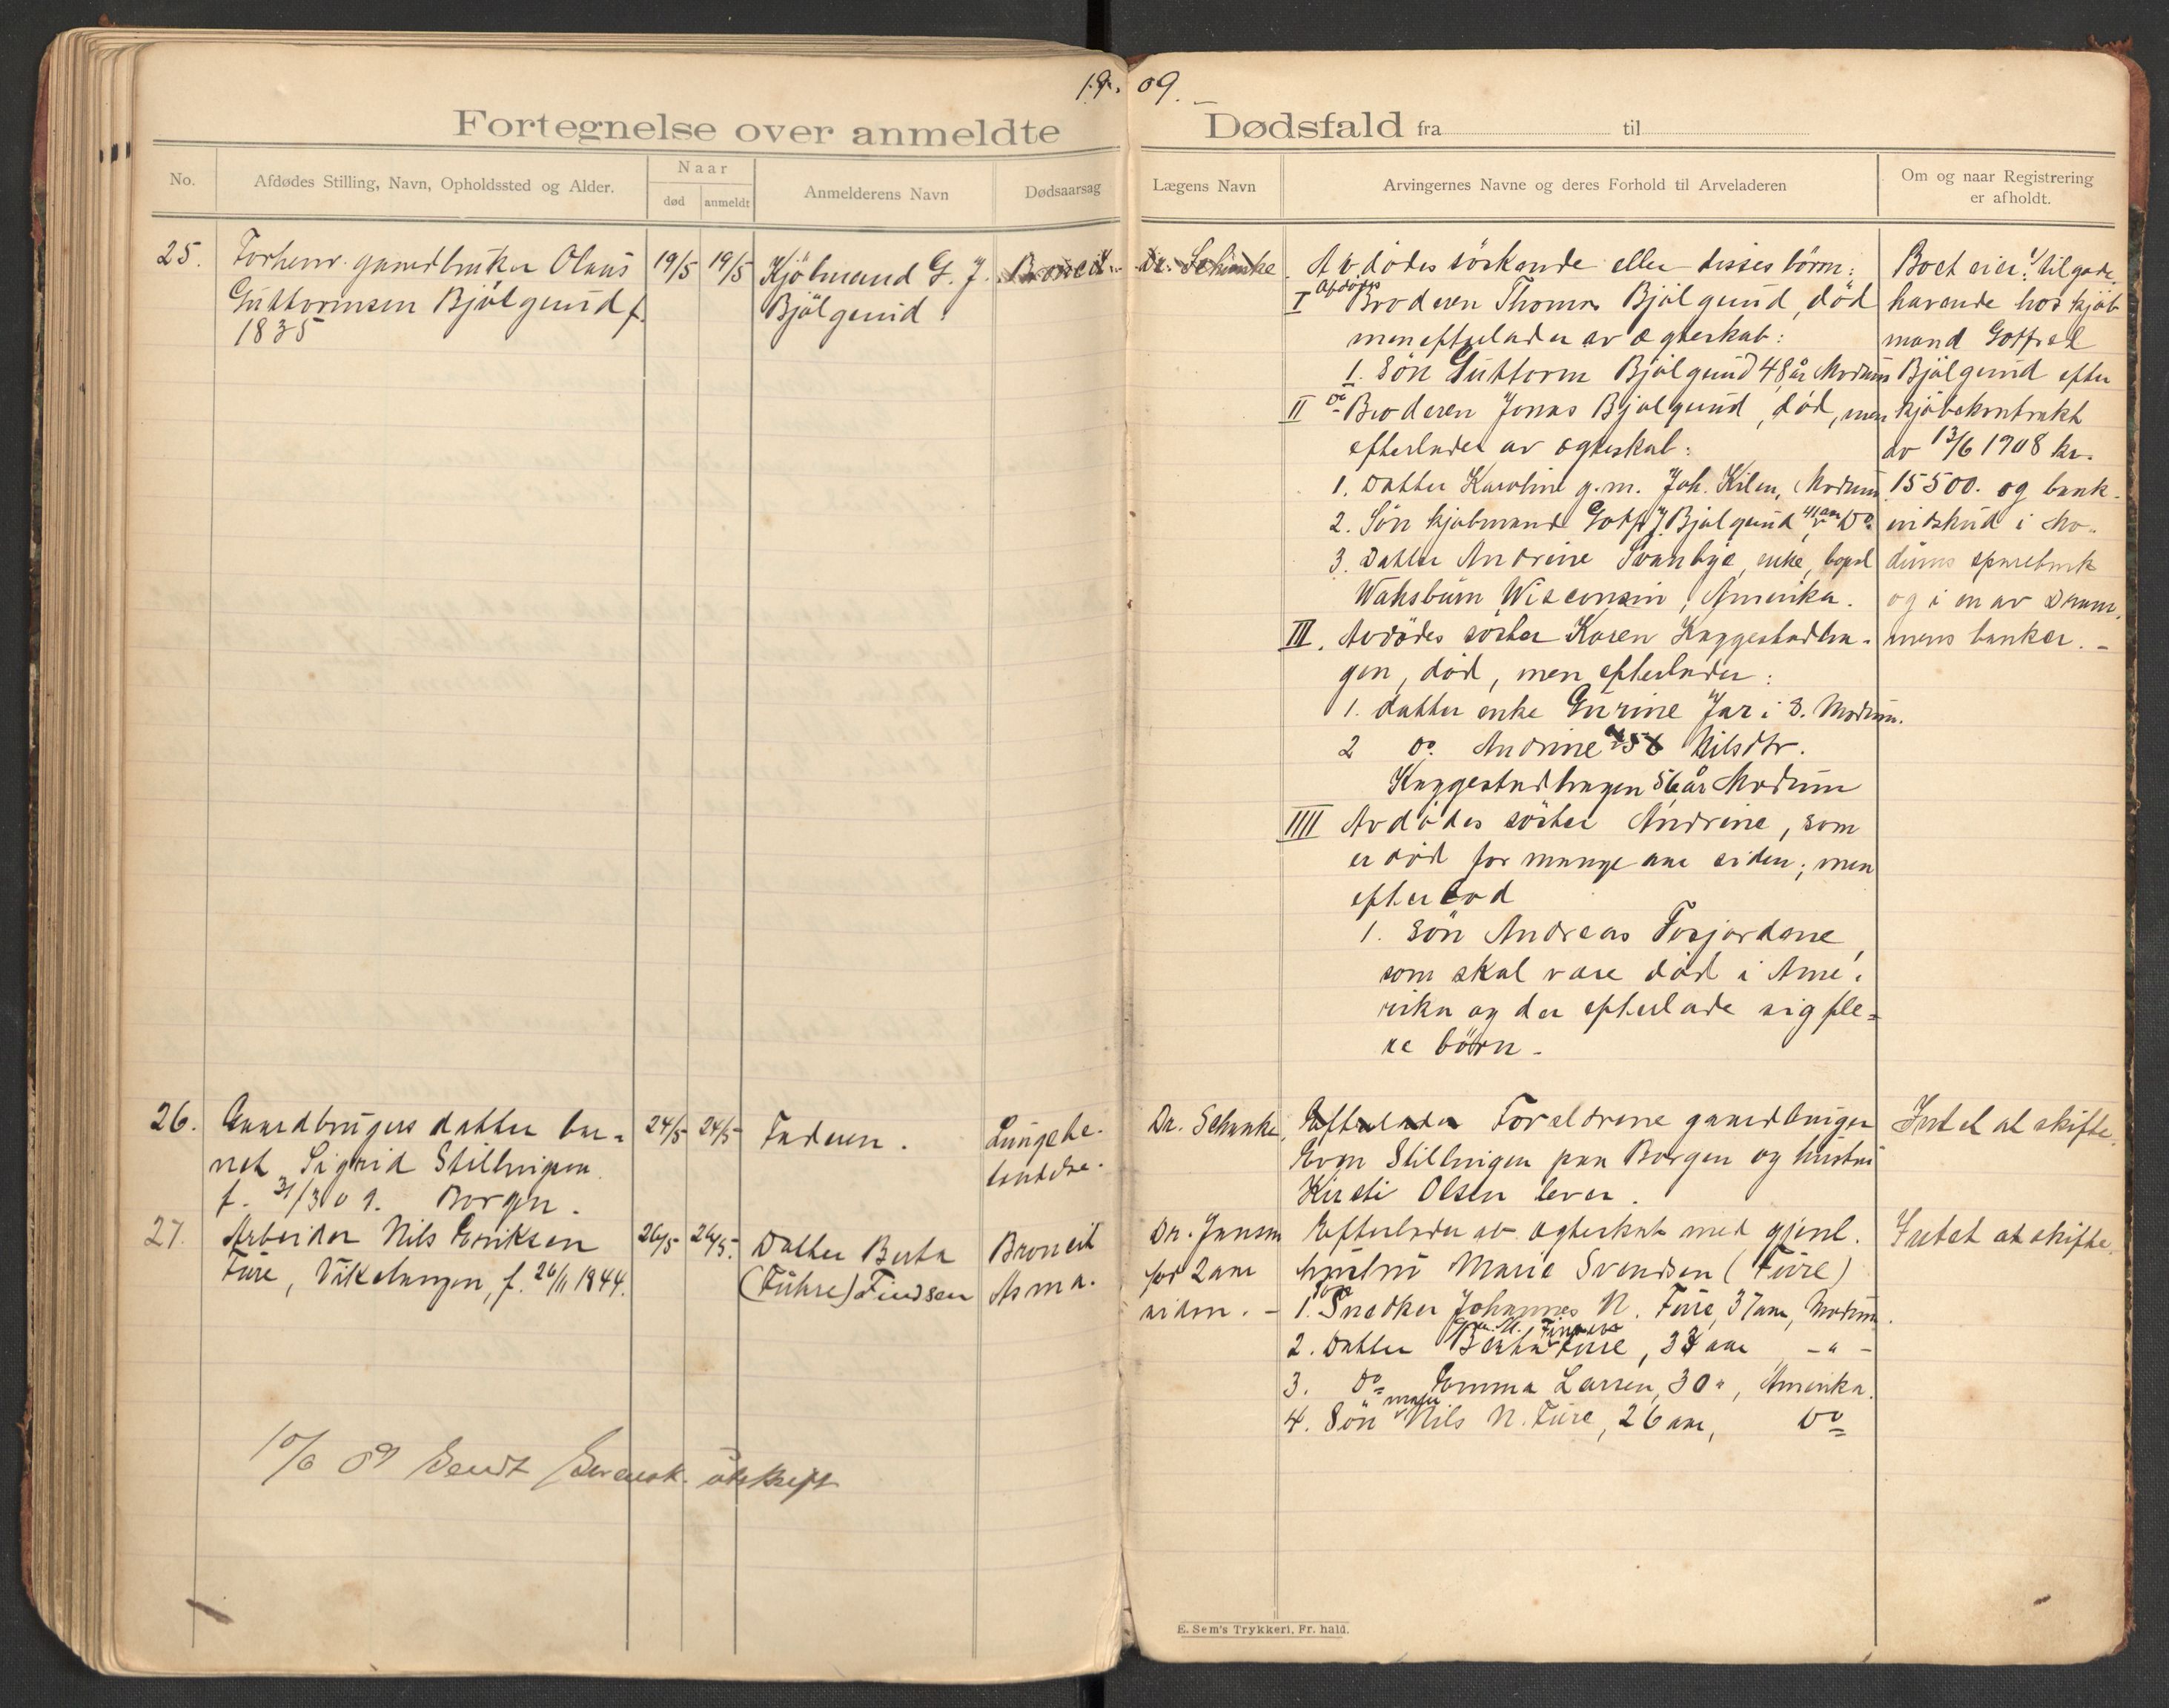 19. 09.
Fortegnelse over anmeldte Dødsfald fra til
No.
Afdødes Stilling, Navn, Opholdssted og Alder.
Naar
død
anmeldt
Anmelderens Navn
Dødsaarsag
Lægens Navn
Arvingernes Navne og deres Forhold til Arveladeren
Om og naar Registrering
er afholdt.
25.
Forhenv. gaardbruker Olaus
Guttormsen Bjølgerud f.
1835
19/5
19/5
Kjöbmand G. J.
Bjölgerud.
Dr. Schinke
Avdödes söskende eller disses börn:
I Afdödes Broderen Thomas Bjölgerud, död
men efterlader av egteskab:
1. Sön Guttorm Bjölgerud 48 år Modum
II do Broderen Jonas Bjölgerud, död, men
efterlader av egteskab:
1. Datter Karoline g.m. Joh. Kilen, Modum
2. Sön kjøbmand Gotfr. J. Bjölgerud 41 aar Do.
3. Datter Andrine Svanbye, enke, bopæl
Wahsburn Wisconsin, Amerika.
III. Avdödes söster Karen Kaggestadha-
gen, död, men efterlader:
1. datter enke Gurine Jar i S. Modum.
2 do. Andrine Nilsdtr.
Kaggestadhagen 56 år Modum
IIII Avdödes söster Andrine, som
er död for mange aar siden; men
efterlod
1. sön Andreas Fosjordene,
som skal være död i Ame-
rika og der efterlade sig fle-
re börn.
Boet eier: 1/ tilgode
havende hos kjöb
mand Gotfred
Bjölgerud efter
kjöbekontrakt
av 13/6 1908 kr.
15500. og bank-
indskud i Mo-
dums sparebank
og i en av Dram-
mens banker.
26.
Gaardbrugers datter bar-
net Sigrid Stillrigsen
f. 31/3 09. Borgen.
24/5
24/5
Faderen.
Lungebe-
tendelse.
Dr. Schanke.
Efterlader Foreldrene gaardbruger
Even Stillrigsen paa Borgen og hustru
Kirsti Olsen lever.
Intet at skifte.
27.
Arbeider Nils Eriksen
Fure, Vikelangen, f. 26/11 1844.
26/5
26/5.
Datter Berta
(Fuhre) Findsen
Broncit
Asma.
Dr. Jansen
for 2 aar
siden. -
Efterlader av egteskab med gjenl.
hustru Marie Svendsen (Fure)
1. Søn Snedker Johannes N. Fure, 37 aar, Modum.
2. Datter Berta Fure, 33 aar - " -
3. do Emma Larsen, 30 ", Amerika.
4. Sön maler Nils N. Fure, 26 aar, Do
Intet at skifte.
10/6 09 Sendt utskrift
E. Sem's Trykkeri, Fr. hald.